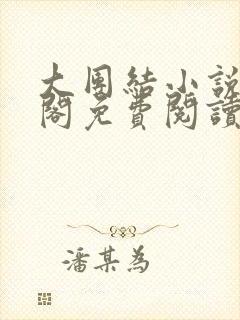 大團結小說
閣免費閱讀
潘某為